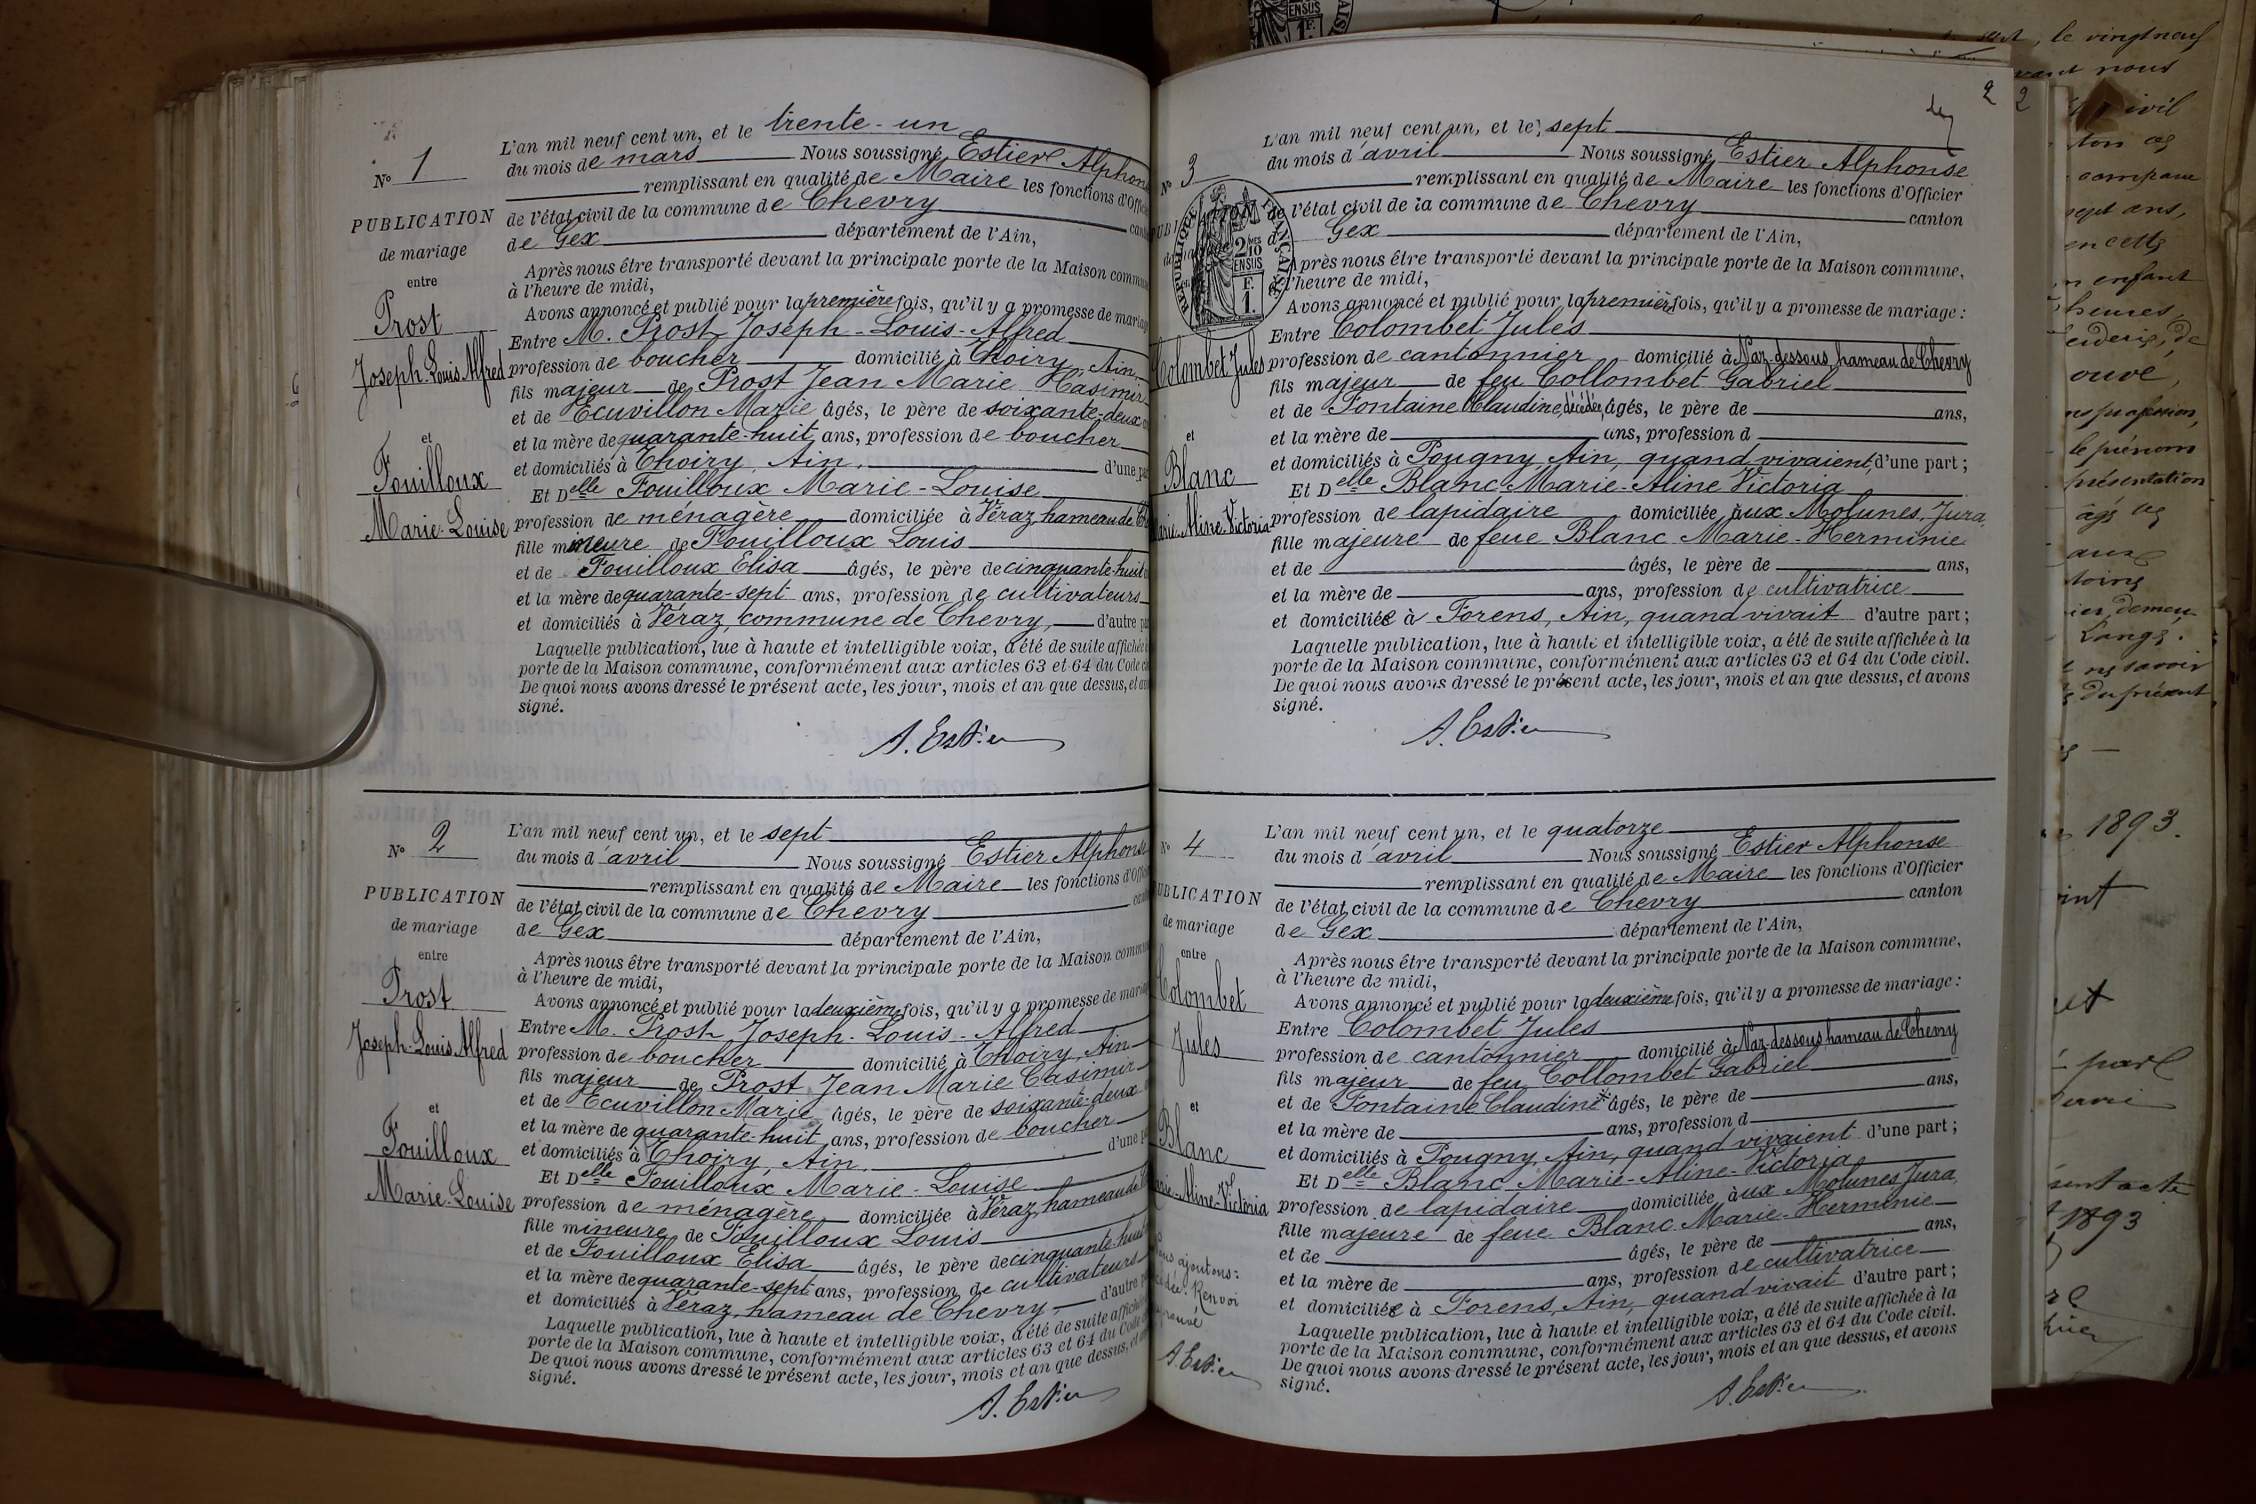 N° 1
PUBLICATION
de mariage
entre
Prost
Joseph-Louis-Alfred
et
Fouilloux
Marie-Louise
L'an mil neuf cent un, et le trente-un
du mois de mars Nous soussigné Estier Alphon
remplissant en qualité de Maire les fonctions d'Offic
de l'état civil de la commune de Chevry cant
de Gex département de l'Ain,
Après nous être transporté devant la principale porte de la Maison commune
à l'heure de midi,
Avons annoncé et publié pour la première fois, qu'il y a promesse de mariage
Entre M. Prost Joseph-Louis-Alfred
profession de boucher domicilié à Thoiry, Ain,
fils majeur de Prost Jean Marie Casimir
et de Ecuvillon Marie âgés, le père de soixante-deux
et la mère de quarante-huit ans, profession de boucher
et domiciliés à Thoiry, Ain, d'une pa
Et Delle Fouilloux Marie-Louise
profession de ménagère domiciliée à Véraz, hameau de Ch
fille mineure de Fouilloux Louis
et de Fouilloux Elisa âgés, le père de cinquante-huit
et la mère de quarante-sept ans, profession de cultivateurs
et domiciliés à Véraz, commune de Chevry, d'autre pa
Laquelle publication, lue à haute et intelligible voix, a été de suite affichée à
porte de la Maison commune, conformément aux articles 63 et 64 du Code ci
De quoi nous avons dressé le présent acte, les jour, mois et an que dessus, et avo
signé.
A. Estier
N° 2
PUBLICATION
de mariage
entre
Prost
Joseph-Louis-Alfred
et
Fouilloux
Marie-Louise
L'an mil neuf cent un, et le sept
du mois d'avril Nous soussigné Estier Alphonse
remplissant en qualité de Maire les fonctions d'Offic
de l'état civil de la commune de Chevry cant
de Gex département de l'Ain,
Après nous être transporté devant la principale porte de la Maison commun
à l'heure de midi,
Avons annoncé et publié pour la deuxième fois, qu'il y a promesse de mariag
Entre M. Prost Joseph-Louis-Alfred
profession de boucher domicilié à Thoiry, Ain
fils majeur de Prost Jean Marie Casimir
et de Ecuvillon Marie âgés, le père de soixante-deux
et la mère de quarante-huit ans, profession de boucher
et domiciliés à Thoiry, Ain, d'une pa
Et Delle Fouilloux Marie-Louise
profession de ménagère domiciliée à Véraz, hameau de
fille mineure de Fouilloux Louis
et de Fouilloux Elisa âgés, le père de cinquante-huit
et la mère de quarante-sept ans, profession de cultivateurs
et domiciliés à Véraz, hameau de Chevry, d'autre p
Laquelle publication, lue à haute et intelligible voix, a été de suite affichée
porte de la Maison commune, conformément aux articles 63 et 64 du Code
De quoi nous avons dressé le présent acte, les jour, mois et an que dessus, et
signé.
A. Estier
2
2
N° 3
PUBLICATION
de mariage
RÉPUBLIQUE FRANÇAISE
2 MES
10
EN SUS
F.
1.
Colombet Jules
et
Blanc
Marie-Aline-Victoria
L'an mil neuf cent un, et le sept
du mois d'avril Nous soussigné Estier Alphonse
remplissant en qualité de Maire les fonctions d'Officier
de l'état civil de la commune de Chevry canton
d Gex département de l'Ain,
Après nous être transporté devant la principale porte de la Maison commune,
à l'heure de midi,
Avons annoncé et publié pour la première fois, qu'il y a promesse de mariage :
Entre Colombet Jules
profession de cantonnier domicilié à Naz-dessous, hameau de Chevry
fils majeur de feu Collombet Gabriel
et de Fontaine Claudine, décédée, âgés, le père de ans,
et la mère de ans, profession d
et domiciliés à Pougny, Ain, quand vivaient, d'une part ;
Et Delle Blanc-Marie-Aline Victoria
profession de lapidaire domiciliée aux Molunes, Jura,
fille majeure de feue Blanc Marie-Herminie
et de âgés, le père de ans,
et la mère de ans, profession de cultivatrice
et domiciliée à Forens, Ain, quand vivait d'autre part ;
Laquelle publication, lue à haute et intelligible voix, a été de suite affichée à la
porte de la Maison commune, conformément aux articles 63 et 64 du Code civil.
De quoi nous avons dressé le présent acte, les jour, mois et an que dessus, et avons
signé.
A. Estier
N° 4
PUBLICATION
de mariage
entre
Colombet
Jules
et
Blanc
Marie-Aline-Victoria
L'an mil neuf cent un, et le quatorze
du mois d'avril Nous soussigné Estier Alphonse
remplissant en qualité de Maire les fonctions d'Officier
de l'état civil de la commune de Chevry canton
de Gex département de l'Ain,
Après nous être transporté devant la principale porte de la Maison commune,
à l'heure de midi,
Avons annoncé et publié pour la deuxième fois, qu'il y a promesse de mariage :
Entre Colombet Jules
profession de cantonnier domicilié à Naz-dessous hameau de Chevry
fils majeur de feu Collombet Gabriel
et de Fontaine Claudine* âgés, le père de ans,
et la mère de ans, profession d
et domiciliés à Pougny, Ain, quand vivaient d'une part ;
Et Delle Blanc-Marie-Aline-Victoria
profession de lapidaire domiciliée aux Molunes Jura,
fille majeure de feue Blanc Marie-Herminie
et de âgés, le père de ans,
et la mère de ans, profession de cultivatrice
et domiciliée à Forens, Ain, quand vivait d'autre part ;
Laquelle publication, lue à haute et intelligible voix, a été de suite affichée à la
porte de la Maison commune, conformément aux articles 63 et 64 du Code civil.
De quoi nous avons dressé le présent acte, les jour, mois et an que dessus, et avons
signé.
A. Estier
ajoutons :
Renvoi
A. Estier
le vingtneuf
nous
ans,
enfant
heures,
le prénom
présentation
ne savoir
du présent
1893.
acte
1893